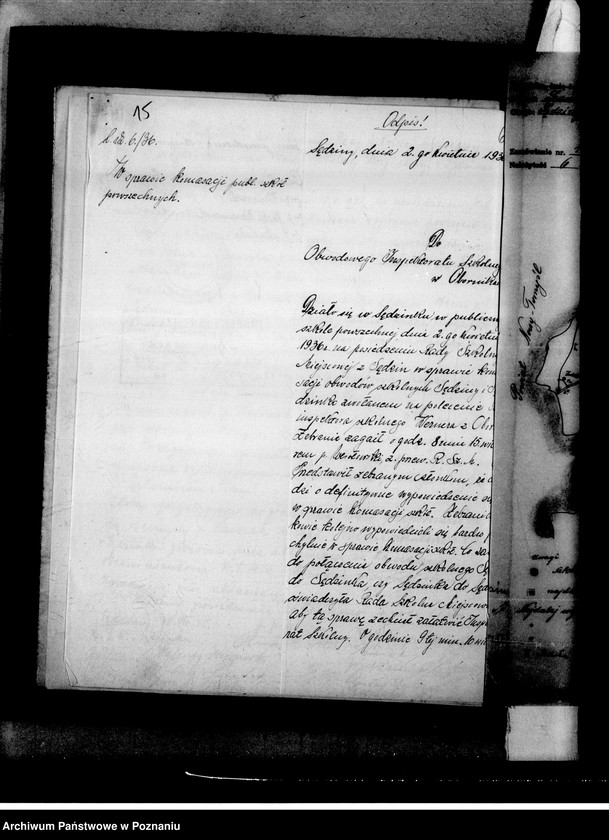 15
Odpis!
L. dz. 6./36.
Sędziny, dnia 2. go kwietnia 193
W sprawie komasacji publ. szkół
powszechnych.
Do
Obwodowego Inspektoratu Szkolnego
w Obornikach
Działo się w Sędzinku w publicznej
szkole powszechnej dnia 2. go kwietnia
1936 r. na posiedzeniu Rady Szkolnej
Miejscowej z Sędzin w sprawie kom
sacji obwodów szkolnych Sędziny i S
dzinko zwołanem na polecenie
inspektora szkolnego Wernera z Obor
Zebranie zagaił o godz. 8 min 15 wie
rem p. z. przew. R. Sz. M.
Przedstawił zebranym członkom, że c
dzi o definitywne wypowiedzenie się
w sprawie komasacji szkół. Zebrani
kowie kolejno wypowiedzieli się bardzo
chylnie w sprawie komasacji szkół. Co do
do połączenia obwodu szkolnego Sę
do Sędzinka, czy Sędzinka do Sędzin
oświadczyła Rada Szkolna Miejscowa
aby tę sprawę zechciał załatwić Inspe
rat Szkolny. O godzinie 9tej min. 10 wie
Powiat Nowy-Tomyśl
Archiwum Państwowe w Poznaniu